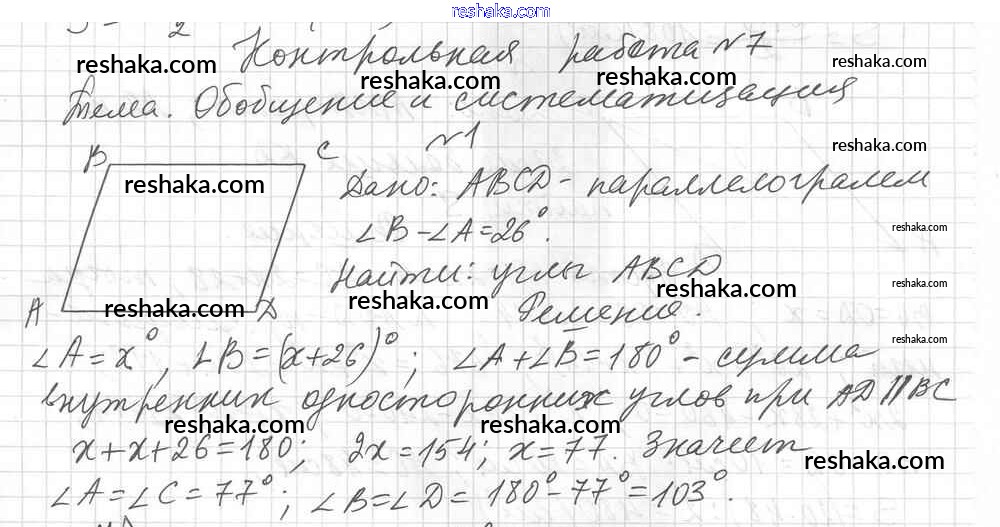 reshaka.com
2
Контрольная работа №7
reshaka.com reshaka.com reshaka.com
Тема. Обобщение и систематизация
№1
reshaka.com
B C
reshaka.com
Дано: ABCD - параллелограмм
∠B - ∠A = 26°.
reshaka.com
Найти: углы ABCD
reshaka.com reshaka.com reshaka.com
A D
Решение.
reshaka.com
∠A = x°, ∠B = (x+26)°; ∠A + ∠B = 180° - сумма
внутренних односторонних углов при AD || BC
reshaka.com reshaka.com
x + x + 26 = 180; 2x = 154; x = 77. Значит
reshaka.com
∠A = ∠C = 77°; ∠B = ∠D = 180° - 77° = 103°.